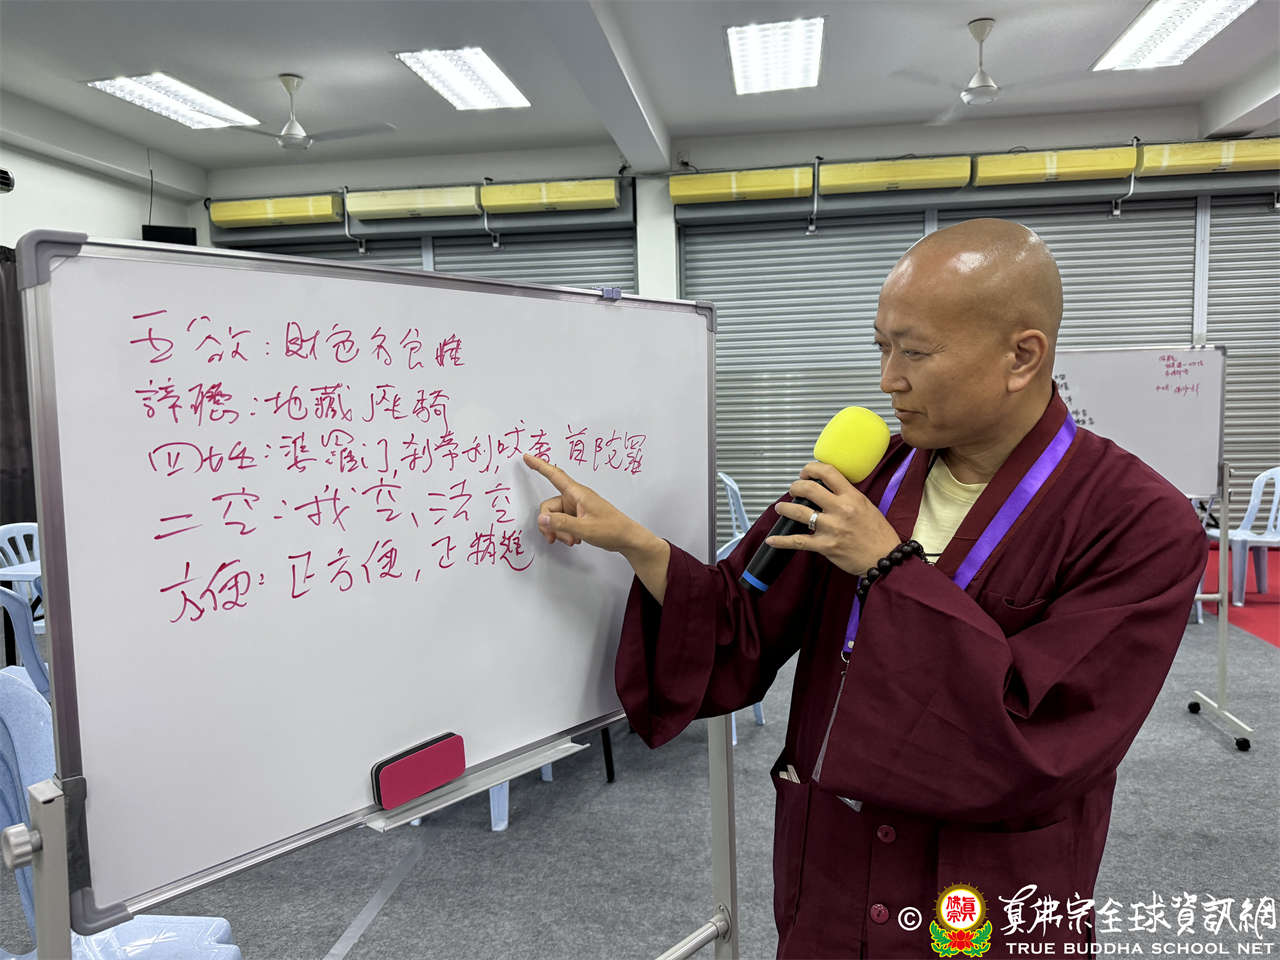 五欲：財色名食睡
諦聽：地藏座騎
四姓：婆羅门,刹帝利,吠舍,首陀羅
二空：我空、法空
方便：正方便，正精進
© 真佛宗全球資訊網
TRUE BUDDHA SCHOOL NET